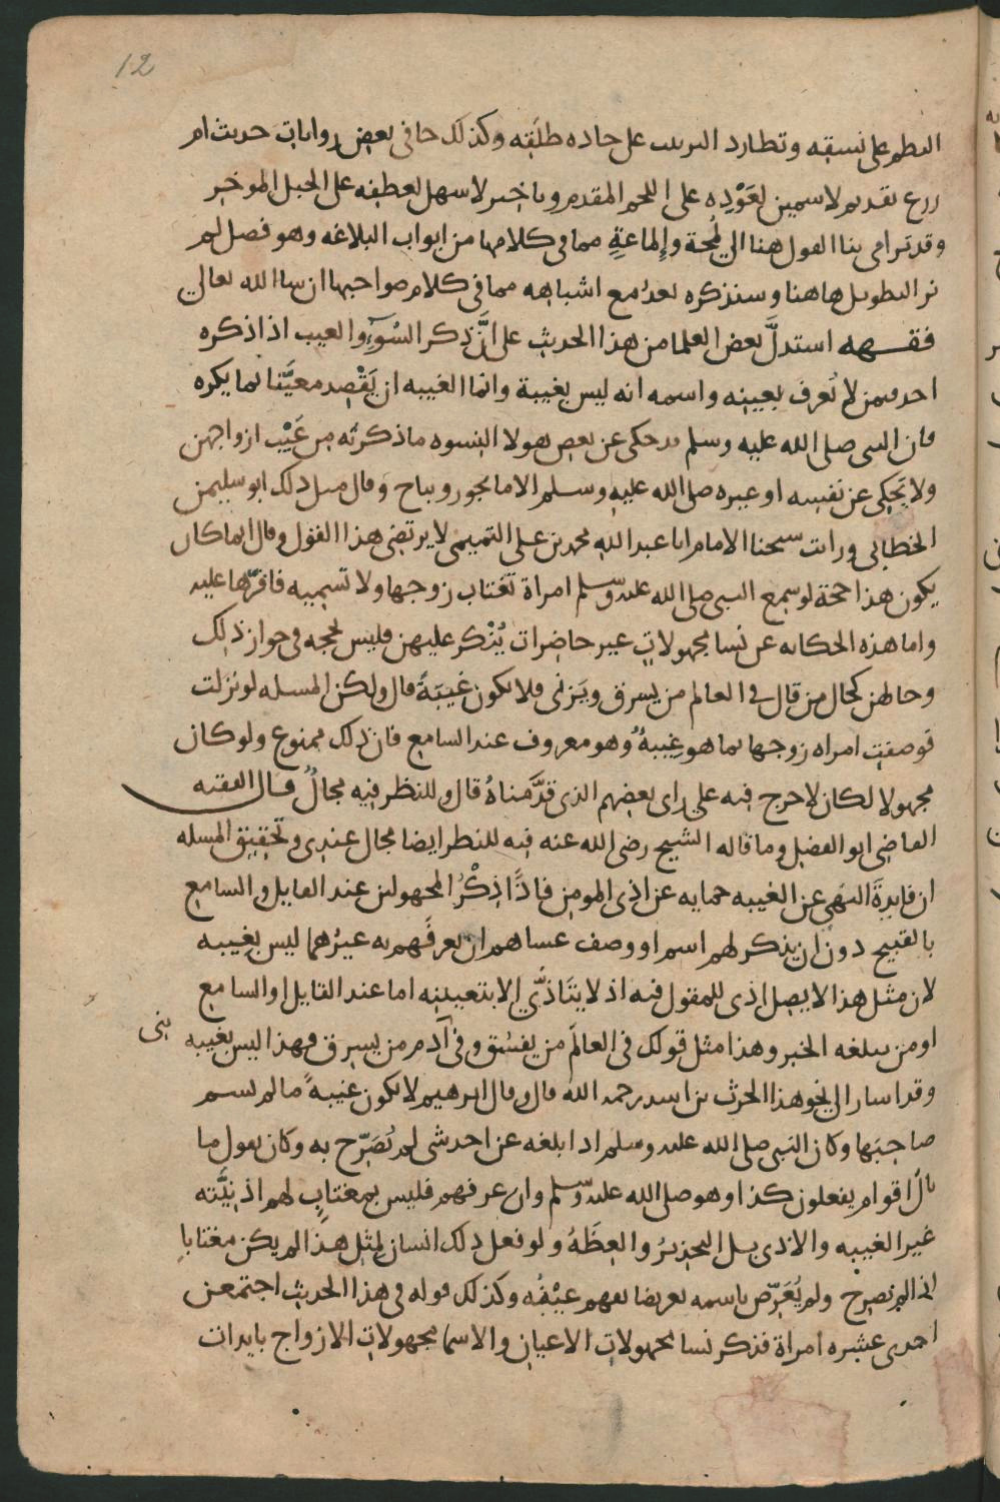 12
النظم على نسقه وتطارد الترتيب على جاده طلقه وكذلك جا في بعض روايات حديث ام
زرع تقديم لا سمين لعَوْدِه على اللحم المقدم وتاخير لا سهل لعطفه على الجبل الموخر
وقد ترامى بنا القول هنا الى لمحة وإلماعةٍ مما في كلامها من ابواب البلاغه وهو فصل لم
نر التطويل هاهنا وسنذكره بعدُ مع اشباهه مما في كلام صواحبها ان شاالله تعالي
فقـــهه استدلَّ بعض العلما من هذا الحديث على انَّ ذكر السُوءِ والعيب اذا ذكره
احد فيمن لا يُعرف بعينه واسمه انه ليس بغيبة وانما الغيبه ان يَقْصِد معيَّنا بما يكره
فان النبى صلى الله عليه وسلم قد حكى عن بعض هولا النسوه ماذكرتْه من عَيْب ازواجهن
ولا يَحكى عن نفسه او غيره صلى الله عليه وسلم الا ما يجوز ويباح وقال مثل ذلك ابو سليمن
الخطابى ورات شيخنا الامام ابا عبد الله محمد بن على التميمى لا يرتضى هذا القول وقال انما كان
يكون هذا حجة لو سمع النبى صلى الله عليه وسلم امراة تغتاب زوجها ولا تسميه فاقرَّها عليه
واما هذه الحكايه عن نسا مجهولاتٍ غير حاضرات يُنْكر عليهن فليس بحجه في جواز ذلك
وحالهن كحال من قال في العالم من يسرق ويَزنى فلا يكون غِيبَةً قال ولكن المسله لو نزلت
فوصفت امراه زوجها بما هو غيبةٌ وهو معروف عند السامع فان ذلك ممنوع ولو كان
مجهولا لكان لا حرج فيه على راى بعضهم الذى قدَّمناهُ قال وللنظر فيه مجالٌ قال الفقيه
القاضى ابو الفضل وما قاله الشيخ رضى الله عنه فيه للنظر ايضا مجال عندى وتحقيق المسله
ان فايدةَ النهى عن الغيبه حمايه عن اذى المومن فاذًا ذِكْرُ المجهولين عند القايل والسامع
بالقبيح دون ان يذكر لهم اسم او وصف عساهم ان يعرفَهم به غيرُهما ليس بغيبه
لان مثل هذا لا يصل اذى للمقول فيه اذ لا يتَاذَّي الا بتعيينه اما عند القايل او السامع
او من يبلغه الخبر وهذا مثل قولك في العالَم من يفسُق وفى آدم من يسرق فهذا ليس بغيبه
بنى
وقد اشار الى نحو هذا الحرث بن اسد رحمه الله قال وقال ابرهيم لا يكون غيبهً ما لم يسم
صاحبَها وكان النبى صلى الله عليه وسلم اذا بلغه عن احد شى لم يُصَرّح به وكان يقول ما
بالُ اقوام يفعلون كذا وهو صلى الله عليه وسلم وان عرفهم فليس بمغتابٍ لهم اذ نِيَّته
غير الغيبه والاذى بل التحذيرُ والعِظَهُ ولو فعل ذلك انسان لمثل هذا لم يكن مغتابا
اذا لم يصرح ولم يُعَرّض باسمه تعريضا يفهم عيْنُه وكذلك قوله في هذا الحديث اجتمعن
احدى عشره امراة فذكر نسا مجهولات الاعيان والاسما مجهولات الازواج بايدات